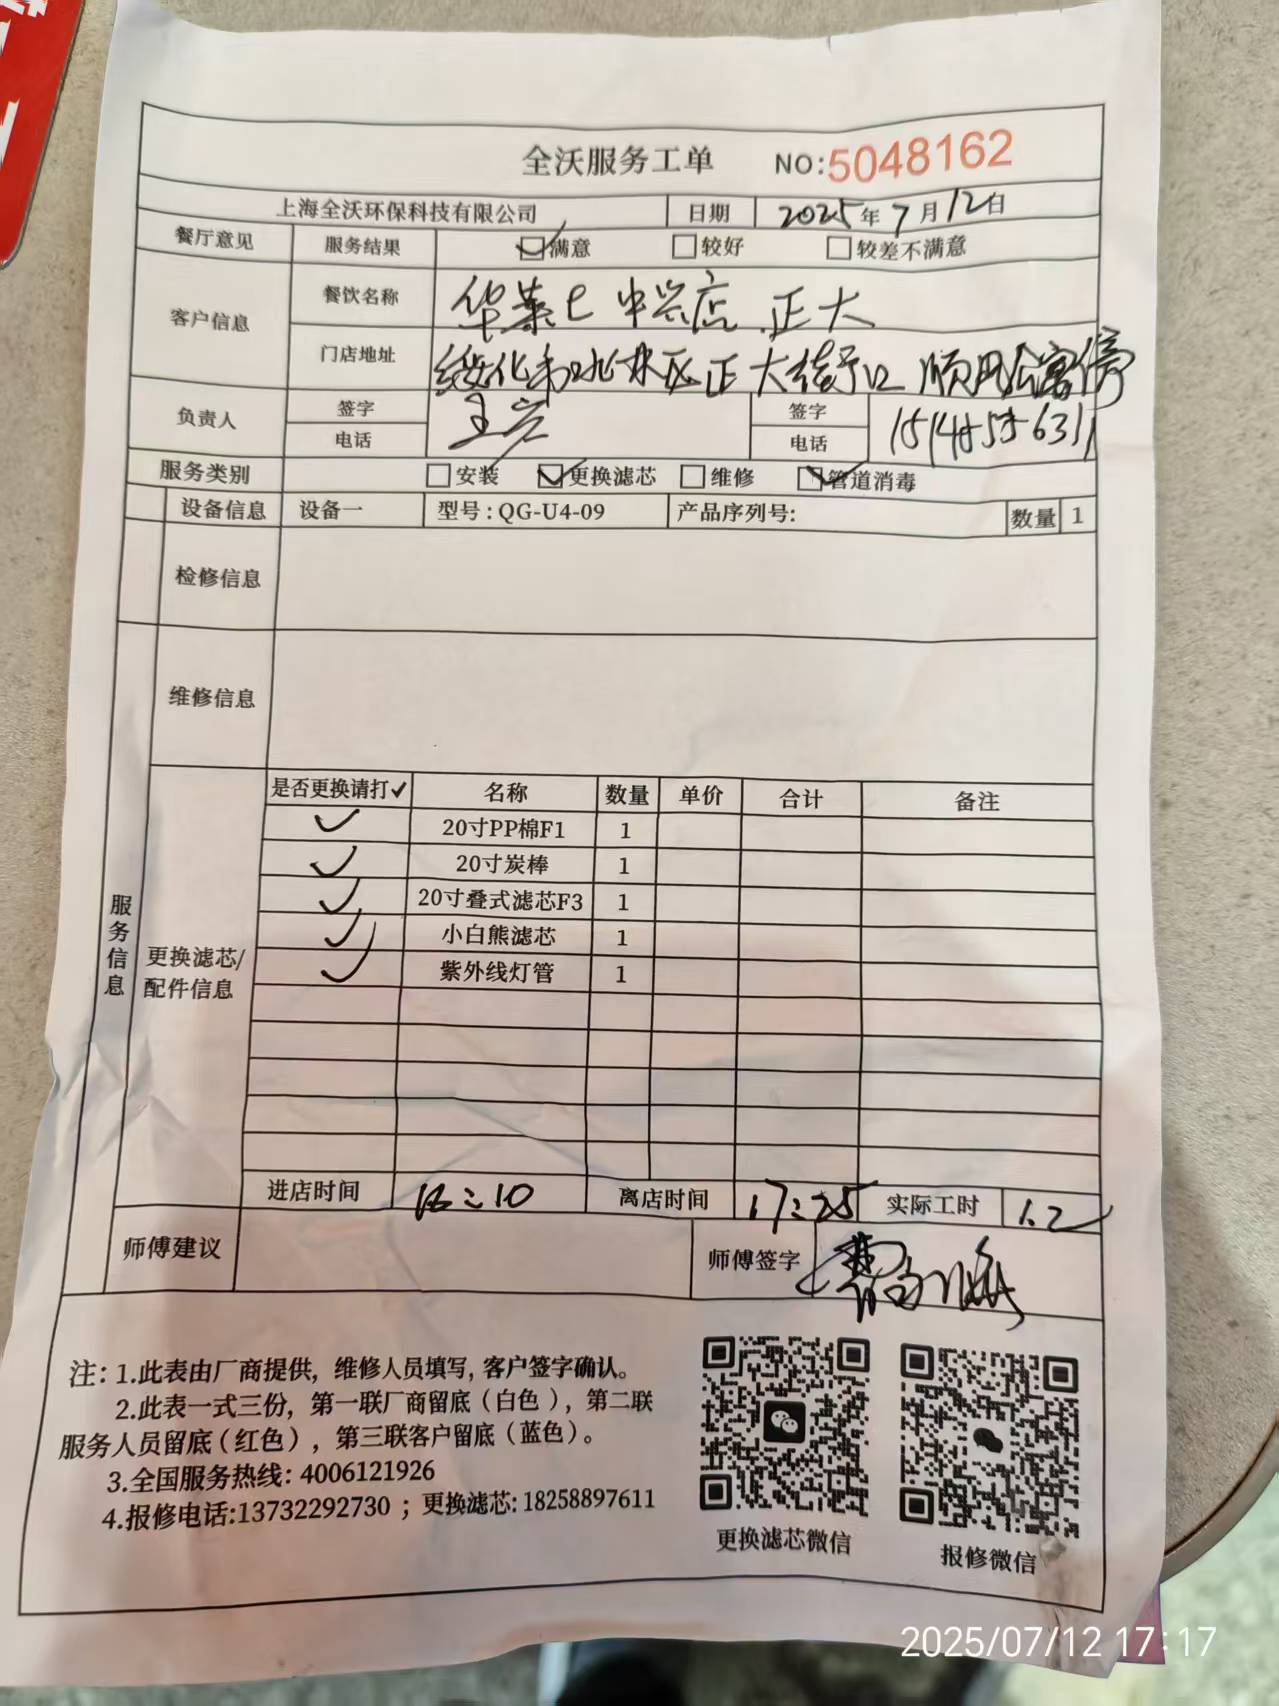 全沃服务工单 NO:5048162
上海全沃环保科技有限公司 日期 2025年7月12日
餐厅意见 服务结果 满意 较好 较差不满意
客户信息 餐饮名称 华莱士 中兴店 正大
门店地址 绥化市北林区正大街 口
负责人 签字 王 签字
电话 电话
服务类别 安装 更换滤芯 维修 管道消毒
设备信息 设备一 型号:QG-U4-09 产品序列号: 数量 1
检修信息
维修信息
服务信息
更换滤芯/配件信息
是否更换请打✓ 名称 数量 单价 合计 备注
✓ 20寸PP棉F1 1
✓ 20寸炭棒 1
✓ 20寸叠式滤芯F3 1
✓ 小白熊滤芯 1
✓ 紫外线灯管 1
进店时间 离店时间 17:25 实际工时 1.2
师傅建议 师傅签字
注: 1.此表由厂商提供, 维修人员填写, 客户签字确认。
2.此表一式三份, 第一联厂商留底(白色), 第二联
服务人员留底(红色), 第三联客户留底(蓝色)。
3.全国服务热线: 4006121926
4.报修电话:13732292730 ; 更换滤芯: 18258897611
更换滤芯微信
报修微信
2025/07/12 17:17